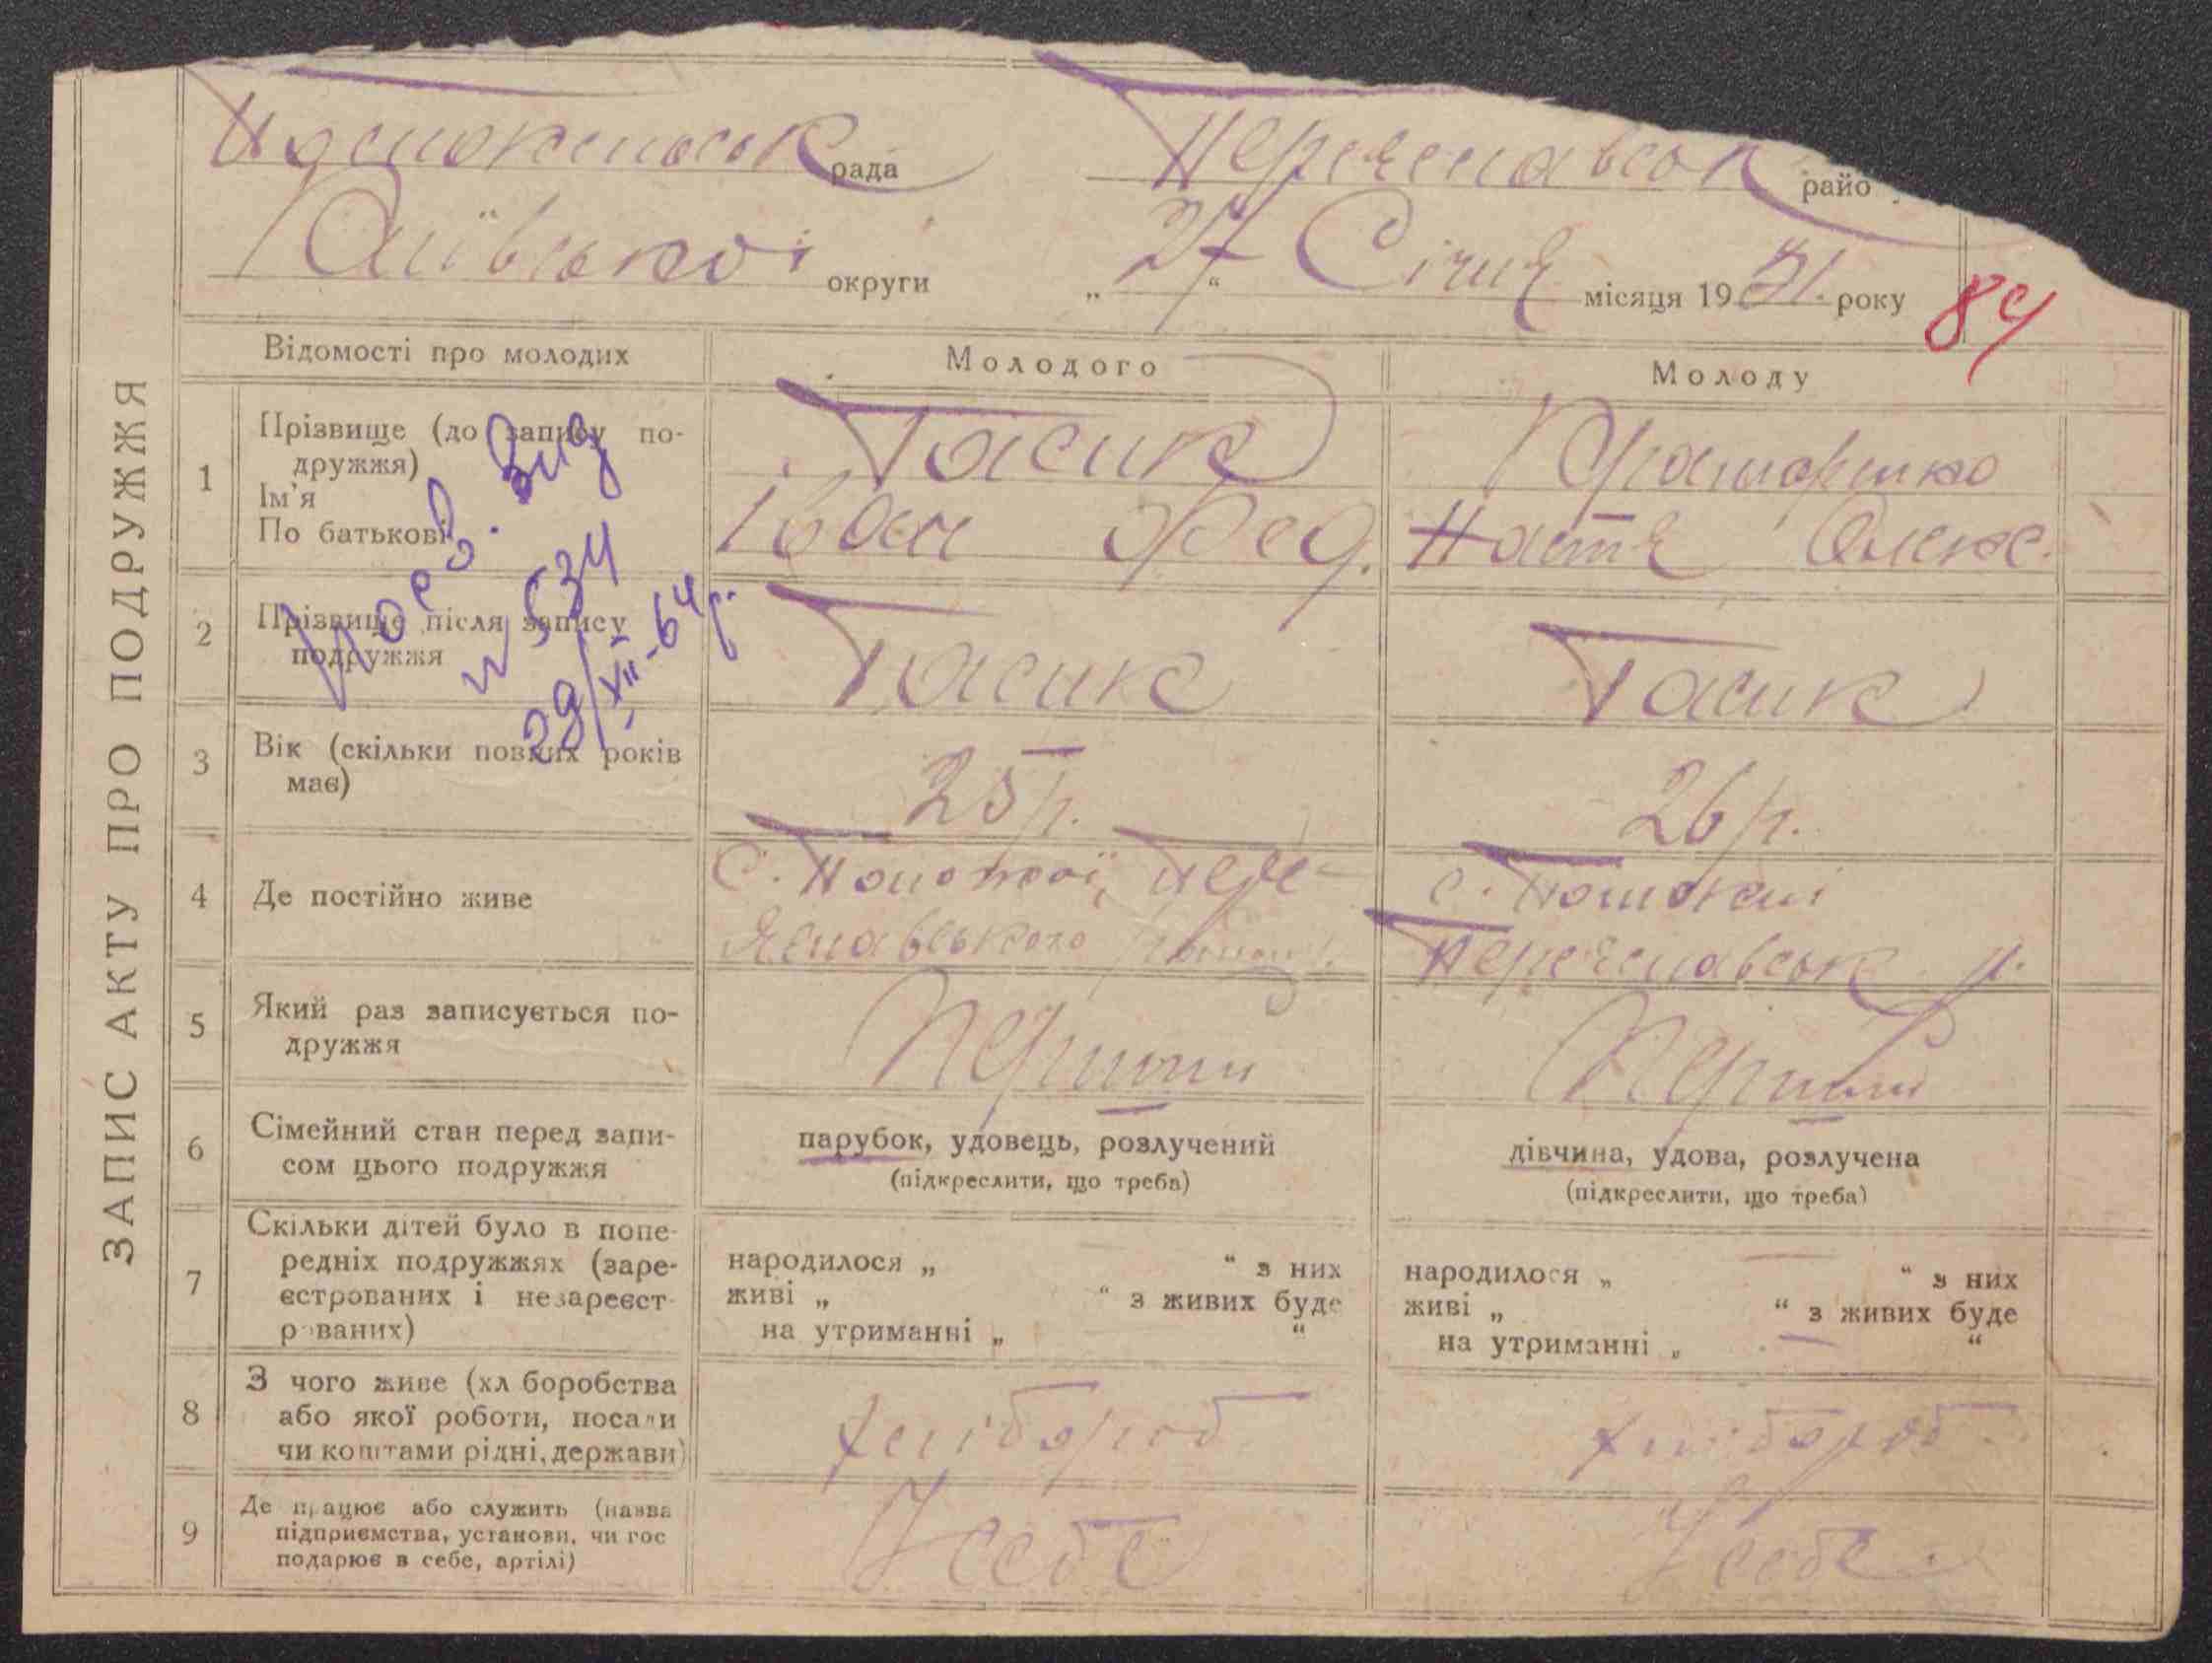 рада
Переяславськ райо
Київської округи
„27“ Січня місяця 1931. року
84
ЗАПИС АКТУ ПРО ПОДРУЖЖЯ
Відомості про молодих
Молодого
Молоду
1
Прізвище (до запису по-
дружжя)
Ім'я
По батькові
Тасик
Іван Фед.
Настя Олекс.
2
Прізвище після запису
подружжя
Тасик
Тасик
N 534
29/XII-64 р.
3
Вік (скільки повних років
має)
25 р.
26 р.
4
Де постійно живе
с. Пере-
яславського
с.
Переяславськ р.
5
Який раз записується по-
дружжя
Перший
Перший
6
Сімейний стан перед запи-
сом цього подружжя
парубок, удовець, розлучений
(підкреслити, що треба)
дівчина, удова, розлучена
(підкреслити, що треба)
7
Скільки дітей було в попе-
редніх подружжях (заре-
єстрованих і незареєст-
рованих)
народилося „ “ з них
живі „ “ з живих буде
на утриманні „ “
народилося „ — “ з них
живі „ “ з живих буде
на утриманні „ — “
8
З чого живе (хл боробства
або якої роботи, посади
чи коштами рідні, держави)
хлібороб
хлібороб
9
Де працює або служить (назва
підприємства, установи, чи гос
подарює в себе, артілі)
У себе
У себе